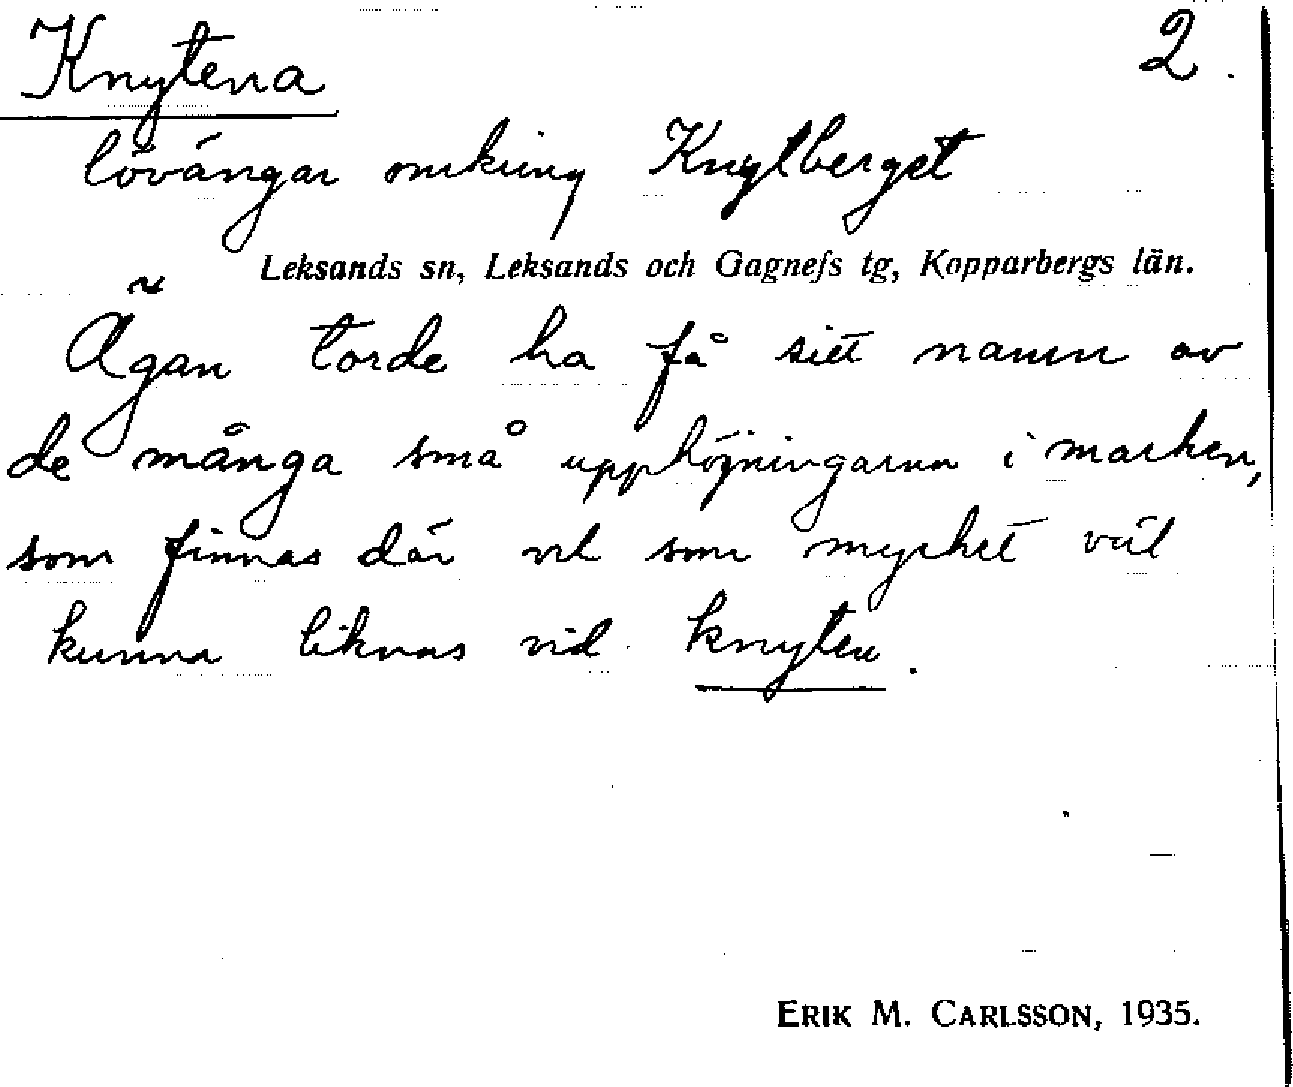 Knytena 2.
lövängar omkring Knytberget
Leksands sn, Leksands och Gagnefs tg, Kopparbergs län.
Ägan torde ha få sitt namn av
de många små upphöjningarna i marken,
som finnas där och som mycket väl
kunna liknas vid knyten.
ERIK M. CARLSSON, 1935.